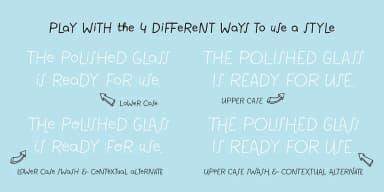 PLAY WITH the 4 DIFFeReNT WAYS To use a STYLe
THe PoLISHeD GLass
is ReaDY FoR use.
THE POLISHED GLASS
IS READY FOR USE.
LoWeR Case
UPPER CASE
THe PoLISHeD GLass
is ReaDY FoR use.
THE POLISHED GLASS
IS READY FOR USE.
LoWeR Case SWaSH & CoNTeXTuaL aLTeRNaTe
UPPER CASE SWASH & CONTEXTUAL ALTERNATE